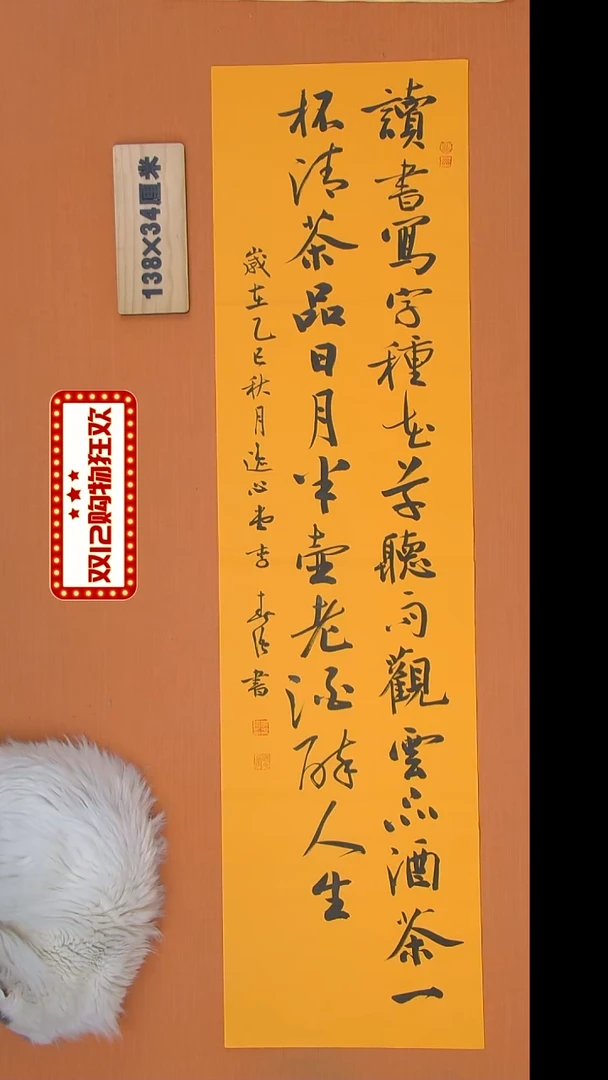 讀書寫字種花草聽雨觀雲品酒茶一
杯清茶品日月半壺老酒醉人生
歲在乙巳秋月逸心堂李書
138×34厘米
双12购物狂欢